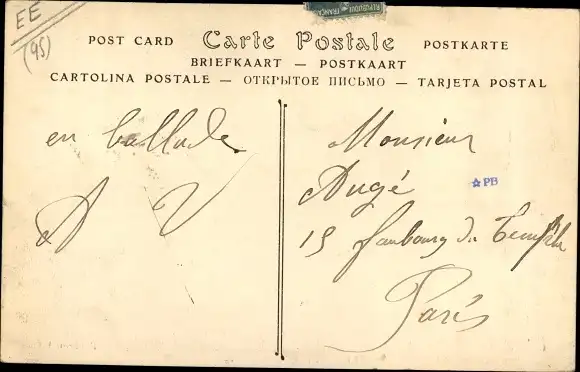 EE
(95)
REPUBLIQUE FRANÇAISE
POST CARD Carte Postale POSTKARTE
BRIEFKAART — POSTKAART
CARTOLINA POSTALE — ОТКРЫТОЕ ПИСЬМО — TARJETA POSTAL
en ballade
A V
Monsieur
Augé
☆PB
15 faubourg du Temple
Paris